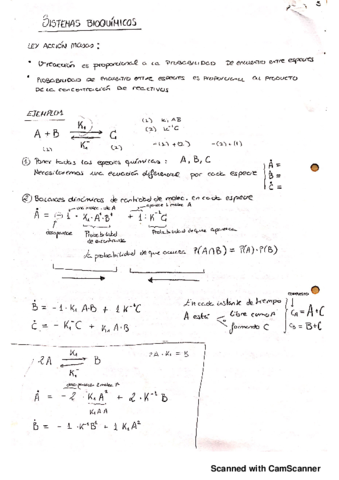 SISTEMAS BIOQUÍMICOS
LEY ACCIÓN MASAS:
• V. reacción es proporcional a la PROBABILIDAD de encuentro entre especies
• PROBABILIDAD DE encuentro entre especies es PROPORCIONAL AL PRODUCTO
DE LA CONCENTRACIÓN DE REACTIVOS
EJEMPLO 1
A + B
K₁
K₁⁻
C
(1) K₁AB
(2) K⁻C
(1)
(2)
-(1)+(2)
-(2)+(1)
① Poner todas las especies químicas: A, B, C
Necesitaremos una ecuación diferencial por cada especie
Ȧ =
Ḃ =
Ċ =
② Balances dinámicos de cantidad de molec. en cada especie
Ȧ = -1 · K₁·A¹·B¹ + 1·K⁻¹C
desaparece
Probabilidad
de encontrarse
Probabilidad de que aparezca
probabilidad de que ocurra P(A∩B) = P(A)·P(B)
Ḃ = -1·K₁A·B + 1K⁻¹C
Ċ = -K₁⁻C + K₁A·B
En cada instante de tiempo
A está
libre como A
formando C
C_A = A+C
C_B = B+C
2A
K₁
K₁⁻
B
2A·K₁ = B
Ȧ = -2·K₁A² + 2·K⁻¹B
K₁AA
Ḃ = -1·K⁻¹B¹ + 1K₁A²
Scanned with CamScanner